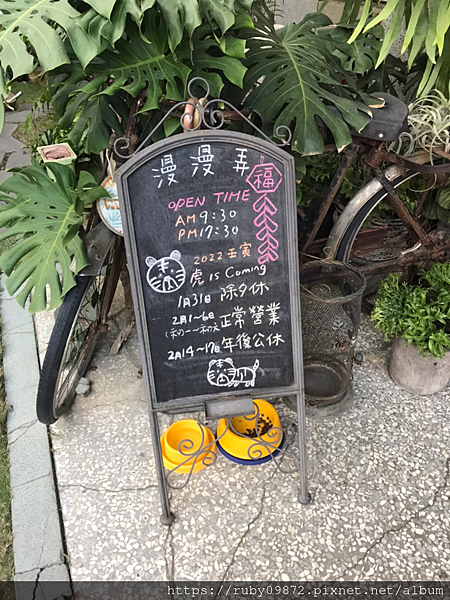 漫漫弄
福
OPEN TIME
AM 9:30
PM 17:30
2022 壬寅
虎 is Coming
1月31 除夕休
2月1~6 正常營業
(初一~初六)
2月14~17 年後公休
https://ruby09872.pixnet.net/album